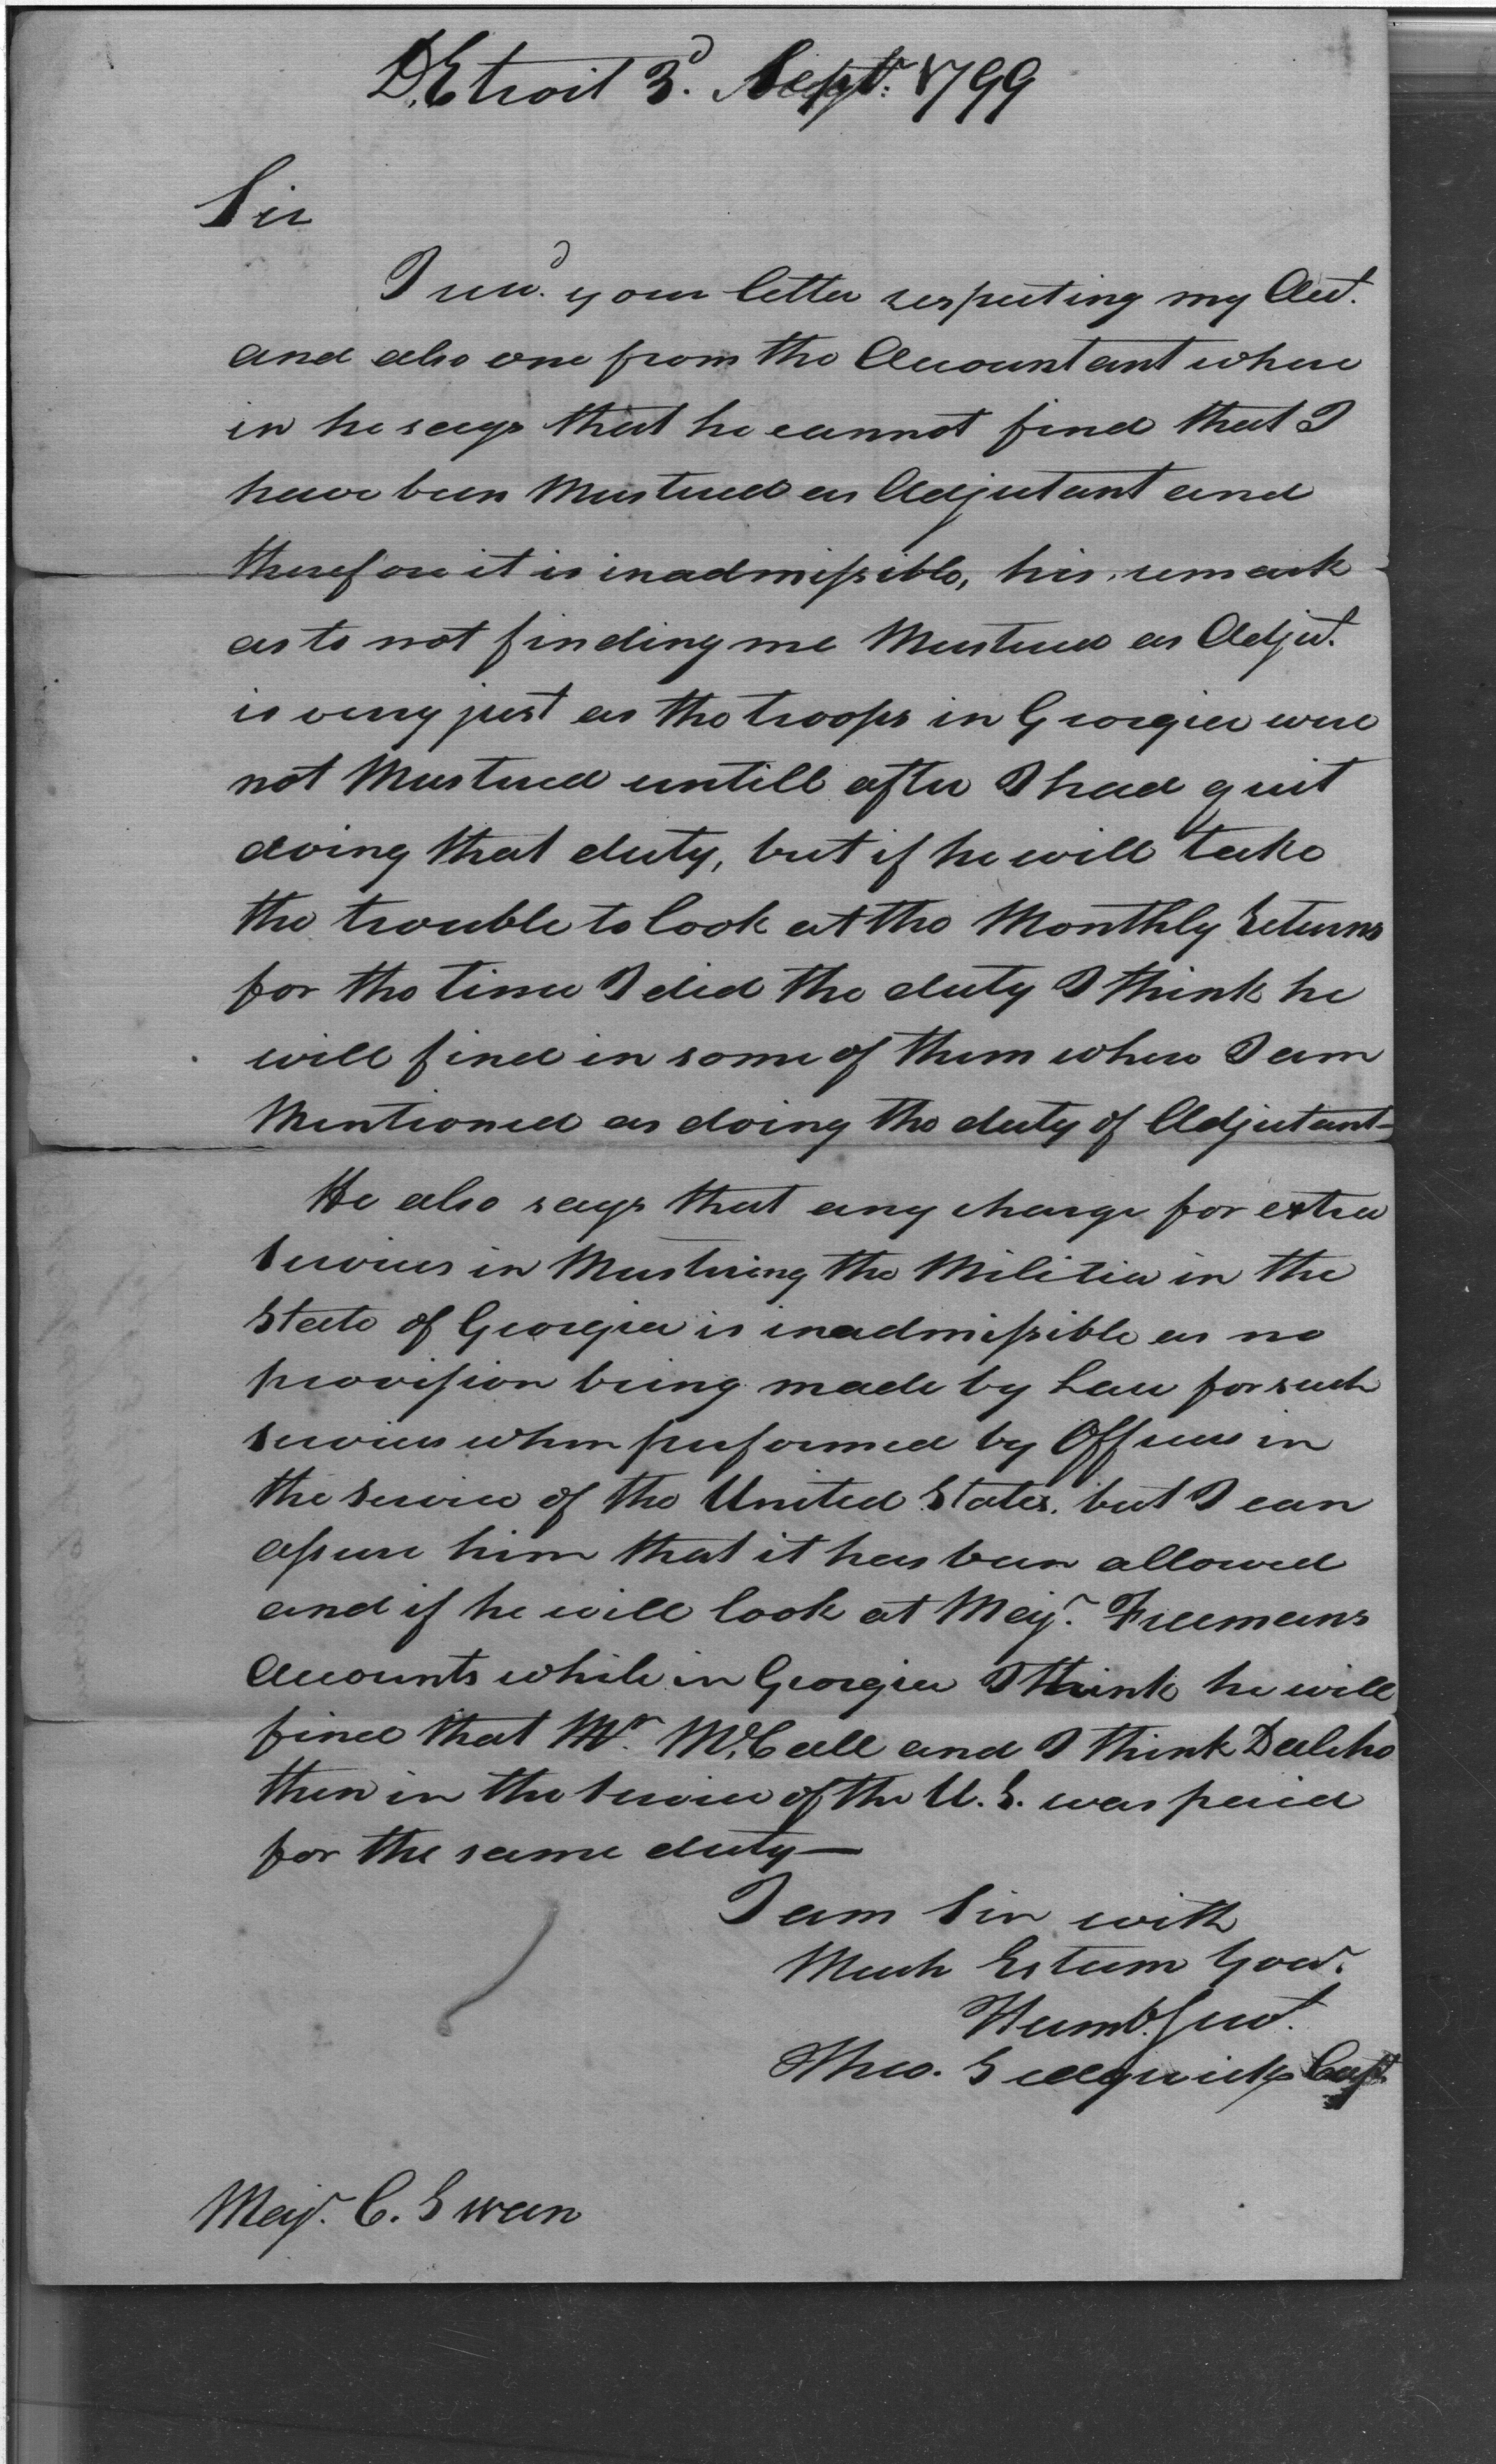 DEtroit 3d. Sept. 1799
Sir
I recd. your letter respecting my Act.
and also one from the Accountant where
in he says that he cannot find that I
have been Mustered as Adjutant and
therefore it is inadmissible, his remark
as to not finding me Mustered as Adjut.
is very just as the troops in Georgia were
not Mustered untill after I had quit
doing that duty, but if he will take
the trouble to look at the Monthly Returns
for the time I did the duty I think he
will find in some of them where I am
Mentioned as doing the duty of Adjutant—
He also says that any charge for extra
Services in Mustering the Militia in the
State of Georgia is inadmissible as no
provision being made by Law for such
services when performed by Officers in
the service of the United States. but I can
assure him that it has been allowed
and if he will look at Majr. Freemans
Accounts while in Georgia I think he will
find that Mr. McCall and I think Dalcho
then in the Service of the U.S. was paid
for the same duty—
I am Sir with
Much Esteem Your.
Humb. Servt.
Theo. Sedgwick Capt.
Majr. C. Swan